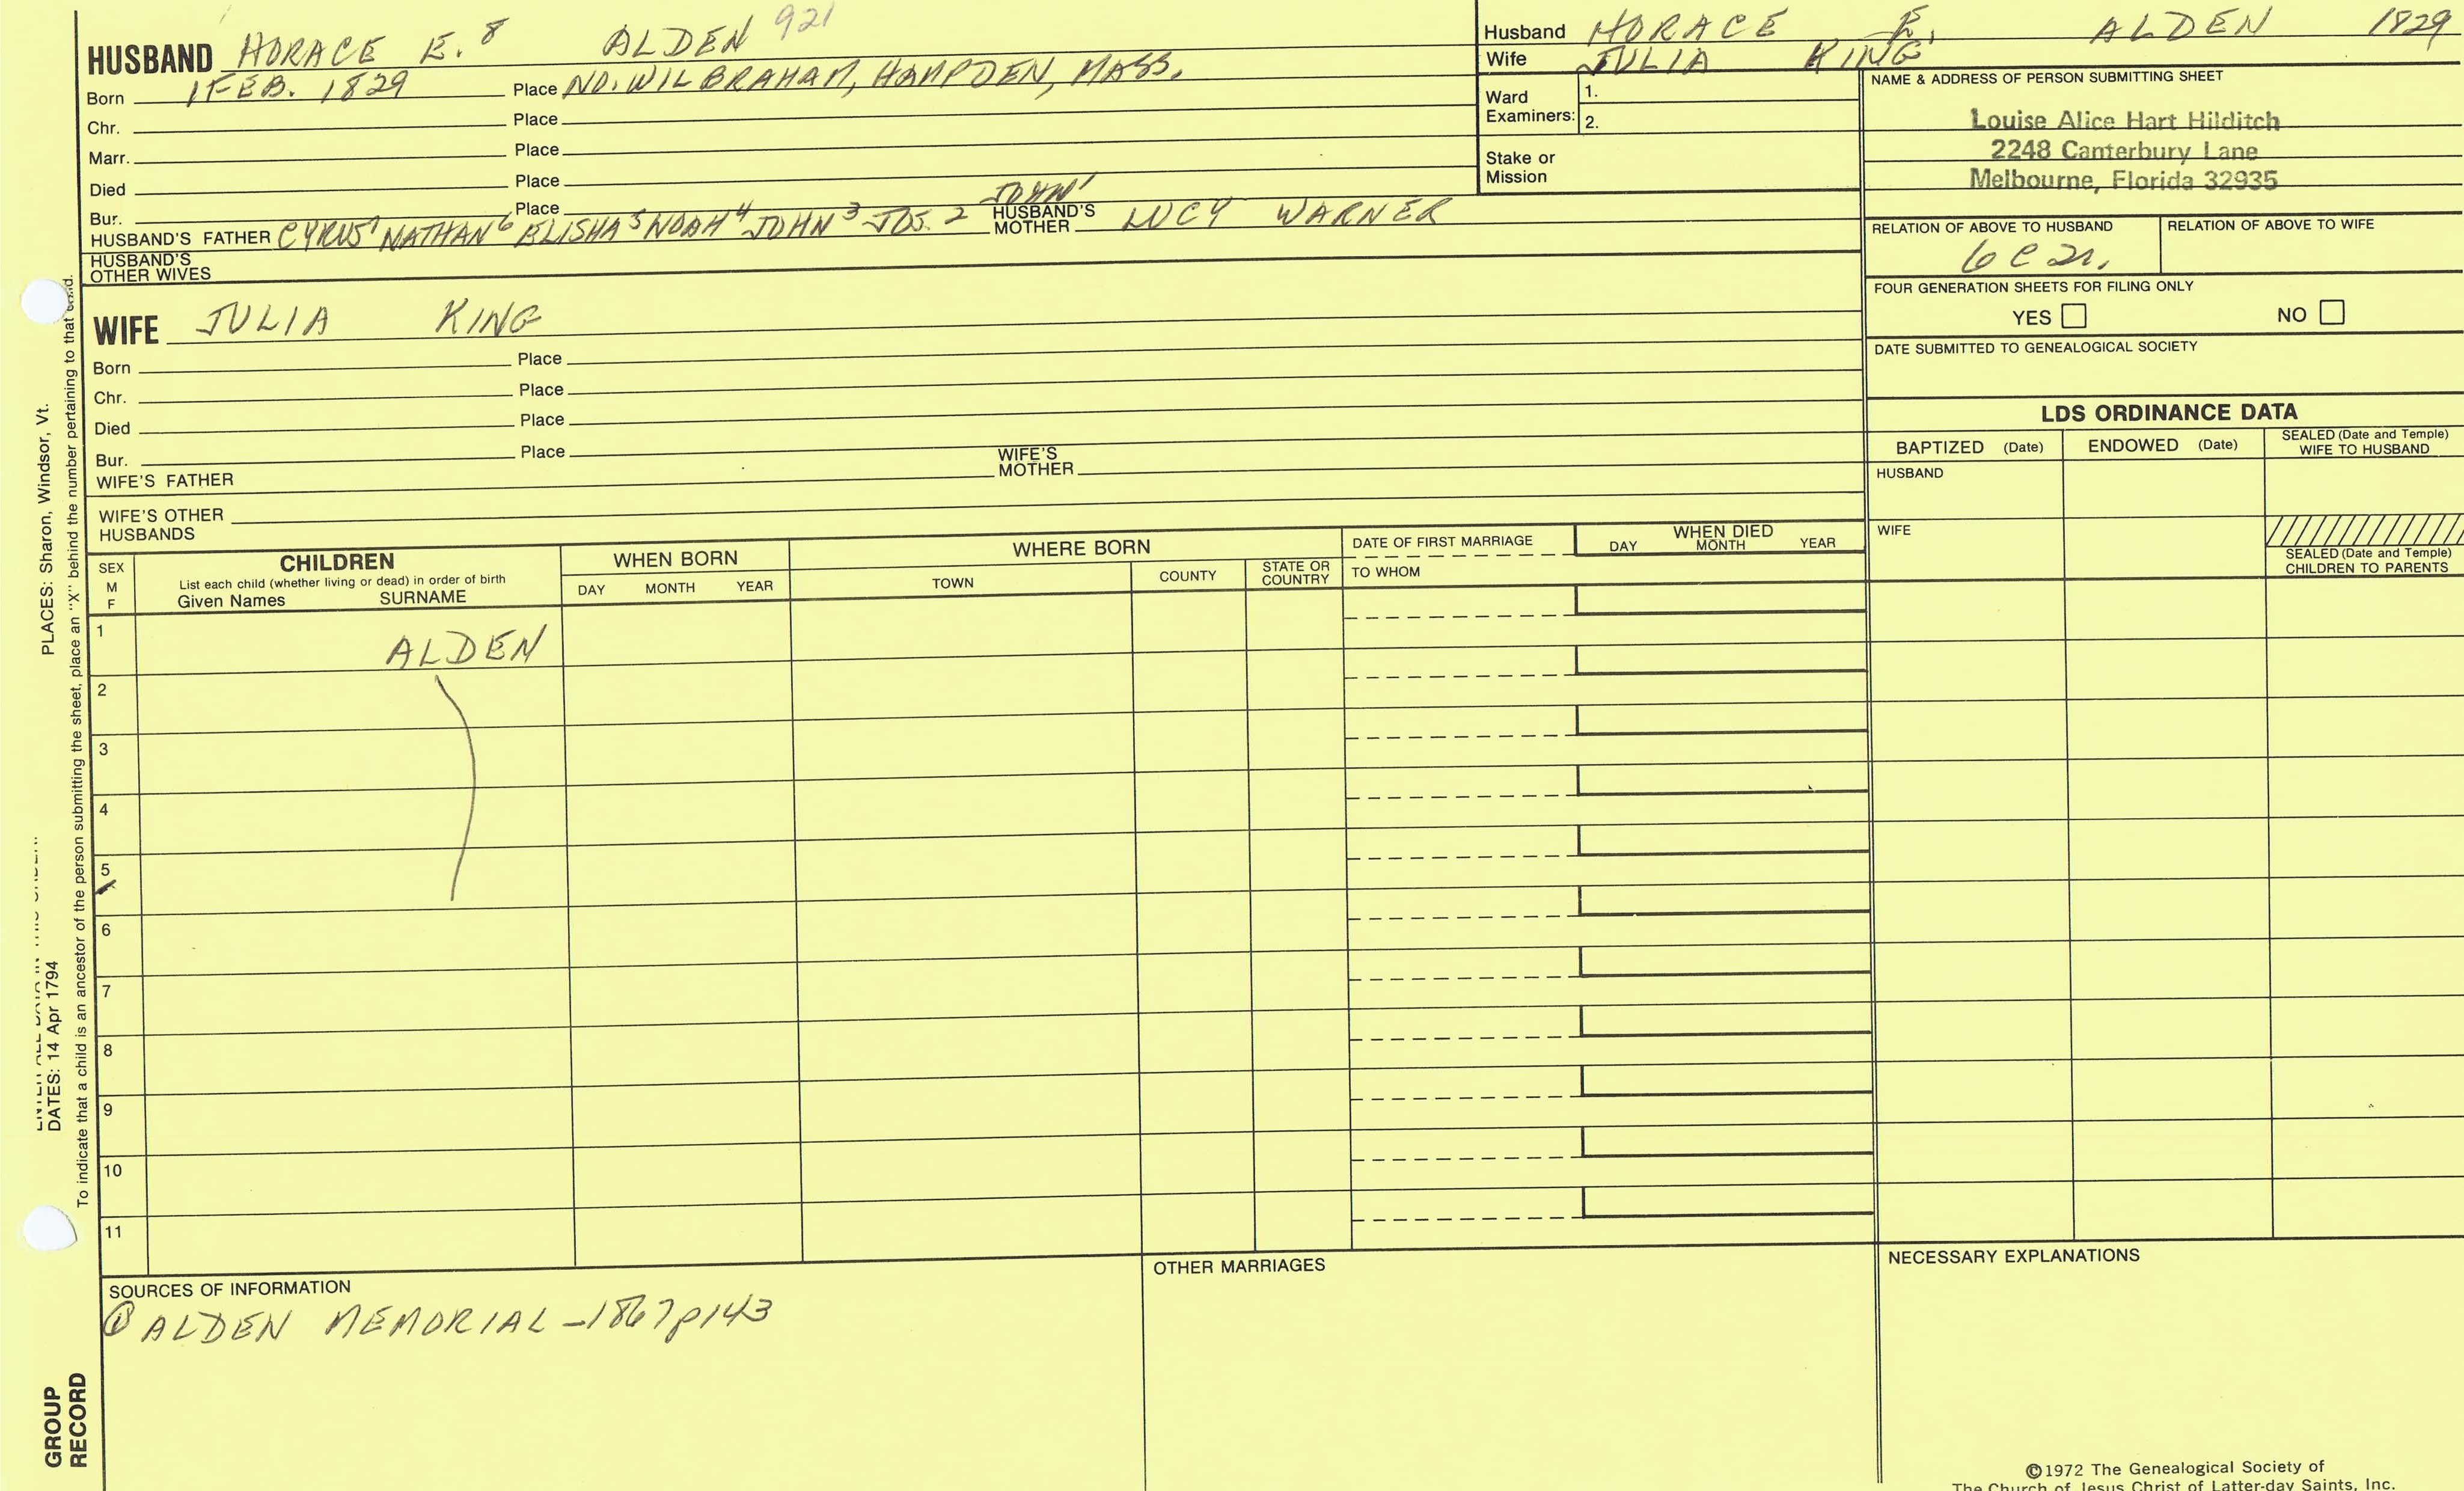 HUSBAND HORACE E.⁸ ALDEN 921
Born 1 FEB. 1829 Place NO. WILBRAHAM, HAMPDEN, MASS.
Chr. Place
Marr. Place
Died Place
Bur. Place
HUSBAND'S FATHER CYRUS⁷ NATHAN⁶ ELISHA⁵ NOAH⁴ JOHN³ JOS.² JOHN¹ HUSBAND'S MOTHER LUCY WARNER
HUSBAND'S OTHER WIVES
WIFE JULIA KING
Born Place
Chr. Place
Died Place
Bur. Place
WIFE'S FATHER WIFE'S MOTHER
WIFE'S OTHER HUSBANDS
Husband HORACE E. ALDEN 1829
Wife JULIA KING
Ward Examiners: 1.
2.
Stake or Mission
NAME & ADDRESS OF PERSON SUBMITTING SHEET
Louise Alice Hart Hilditch
2248 Canterbury Lane
Melbourne, Florida 32935
RELATION OF ABOVE TO HUSBAND RELATION OF ABOVE TO WIFE
FOUR GENERATION SHEETS FOR FILING ONLY
YES NO
DATE SUBMITTED TO GENEALOGICAL SOCIETY
LDS ORDINANCE DATA
BAPTIZED (Date) ENDOWED (Date) SEALED (Date and Temple) WIFE TO HUSBAND
HUSBAND
WIFE
SEALED (Date and Temple) CHILDREN TO PARENTS
SEX M F
CHILDREN
List each child (whether living or dead) in order of birth
Given Names SURNAME
WHEN BORN
DAY MONTH YEAR
WHERE BORN
TOWN COUNTY STATE OR COUNTRY
DATE OF FIRST MARRIAGE
TO WHOM
WHEN DIED
DAY MONTH YEAR
1 ALDEN
2
3
4
5
6
7
8
9
10
11
SOURCES OF INFORMATION
① ALDEN MEMORIAL - 1867 p143
OTHER MARRIAGES
NECESSARY EXPLANATIONS
©1972 The Genealogical Society of
The Church of Jesus Christ of Latter-day Saints, Inc.
PLACES: Sharon, Windsor, Vt.
DATES: 14 Apr 1794
To indicate that a child is an ancestor of the person submitting the sheet, place an "X" behind the number pertaining to that child.
GROUP
RECORD